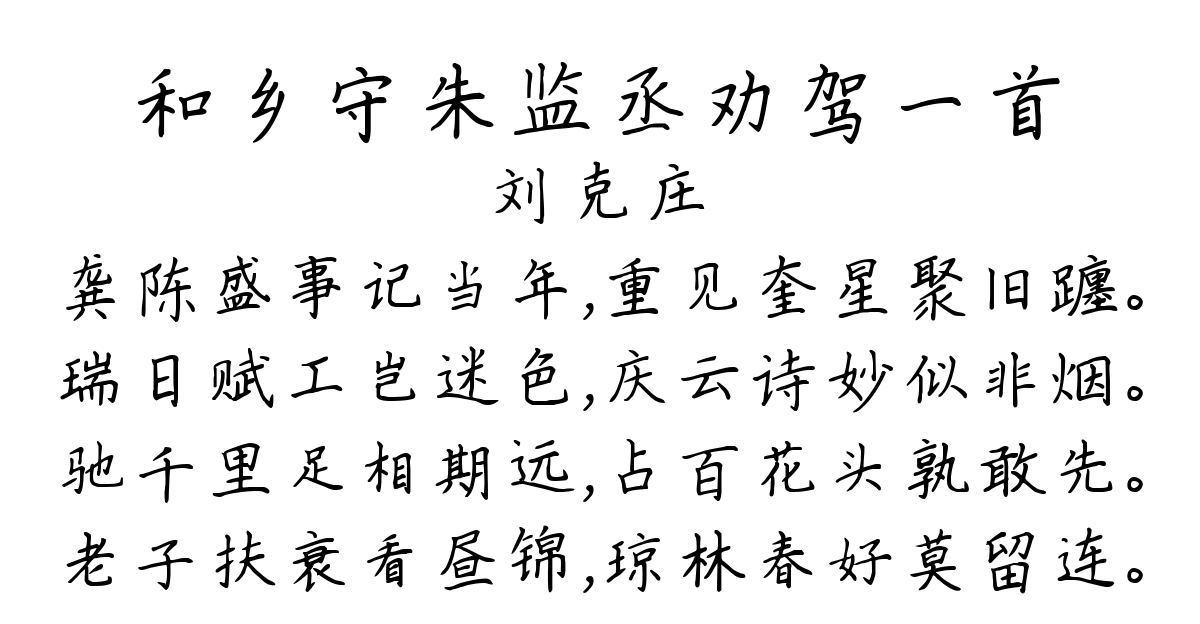 和乡守朱监丞劝驾一首
刘克庄
龚陈盛事记当年,重见奎星聚旧躔。
瑞日赋工岂迷色,庆云诗妙似非烟。
驰千里足相期远,占百花头孰敢先。
老子扶衰看昼锦,琼林春好莫留连。